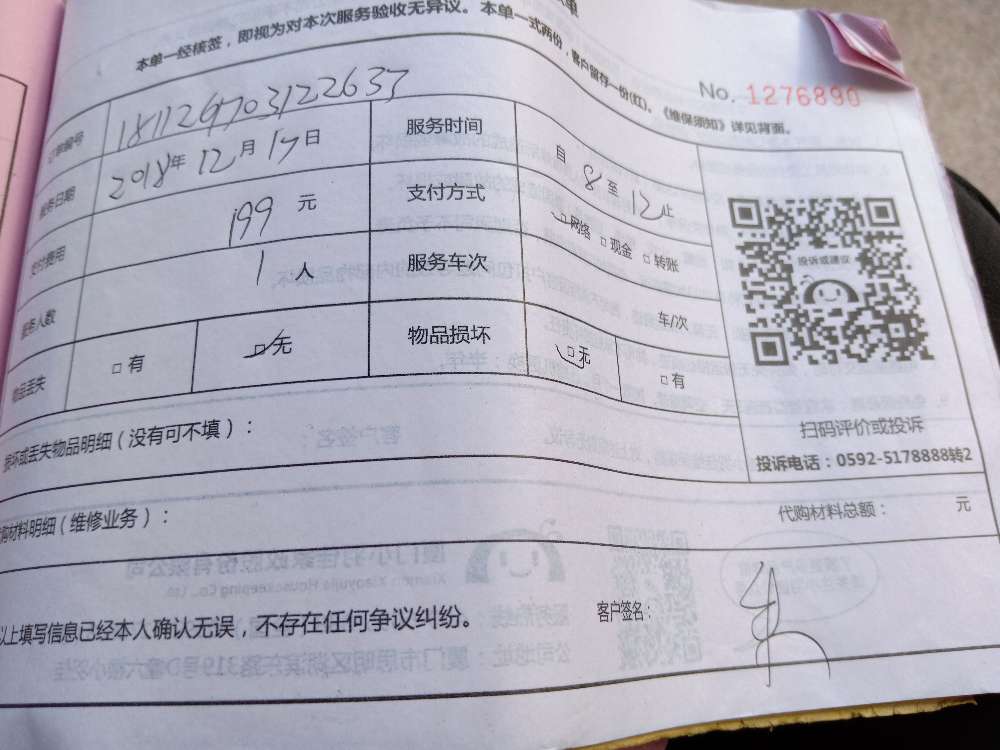 单
本单一经核签，即视为对本次服务验收无异议。本单一式两份，客户留存一份(红)，《维保须知》详见背面。
No. 1276890
订单编号 181129703122637
服务日期 2018年12月17日 服务时间 自8至12止
支付费用 199元 支付方式 □网络 □现金 □转账
服务人数 1人 服务车次 车/次
物品丢失 □有 □无 物品损坏 □无 □有
投诉或建议
扫码评价或投诉
投诉电话：0592-5178888转2
损坏或丢失物品明细（没有可不填）：
代购材料明细（维修业务）： 代购材料总额： 元
以上填写信息已经本人确认无误，不存在任何争议纠纷。 客户签名：